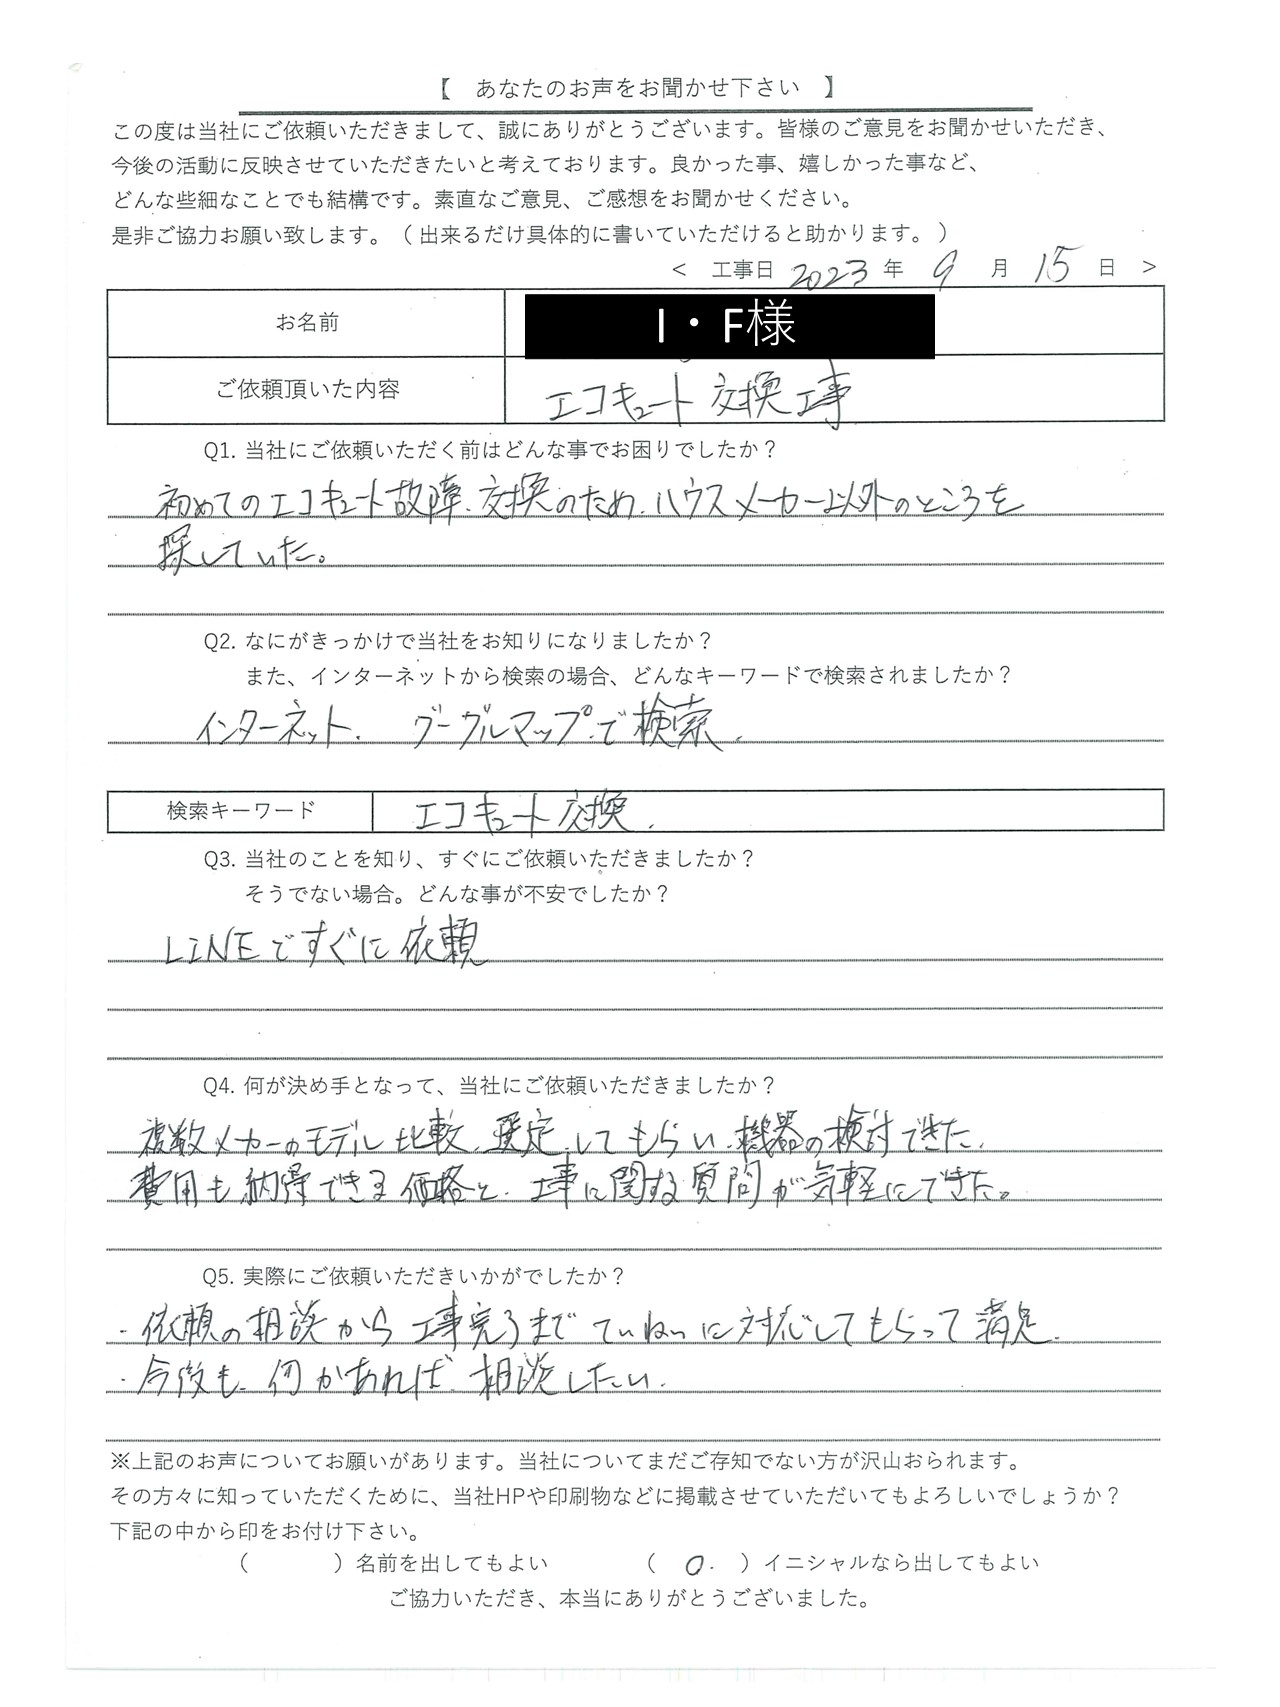 【 あなたのお声をお聞かせ下さい 】
この度は当社にご依頼いただきまして、誠にありがとうございます。皆様のご意見をお聞かせいただき、
今後の活動に反映させていただきたいと考えております。良かった事、嬉しかった事など、
どんな些細なことでも結構です。素直なご意見、ご感想をお聞かせください。
是非ご協力お願い致します。（ 出来るだけ具体的に書いていただけると助かります。）
＜ 工事日 2023 年 9 月 15 日 ＞
お名前 I・F様
ご依頼頂いた内容 エコキュート 交換工事
Q1. 当社にご依頼いただく前はどんな事でお困りでしたか？
初めてのエコキュート故障、交換のため、ハウスメーカー以外のところを
探していた。
Q2. なにがきっかけで当社をお知りになりましたか？
また、インターネットから検索の場合、どんなキーワードで検索されましたか？
インターネット、 グーグルマップで検索、
検索キーワード エコキュート交換、
Q3. 当社のことを知り、すぐにご依頼いただきましたか？
そうでない場合。どんな事が不安でしたか？
LiNEですぐに依頼
Q4. 何が決め手となって、当社にご依頼いただきましたか？
複数メーカーのモデル比較、選定してもらい、機器の検討できた、
費用も納得できる価格と、工事に関する質問が気軽にできた。
Q5. 実際にご依頼いただきいかがでしたか？
・依頼の相談から工事完了までていねいに対応してもらって満足、
・今後も、何かあれば、相談したい、
※上記のお声についてお願いがあります。当社についてまだご存知でない方が沢山おられます。
その方々に知っていただくために、当社HPや印刷物などに掲載させていただいてもよろしいでしょうか？
下記の中から印をお付け下さい。
（ ）名前を出してもよい （ 0. ）イニシャルなら出してもよい
ご協力いただき、本当にありがとうございました。